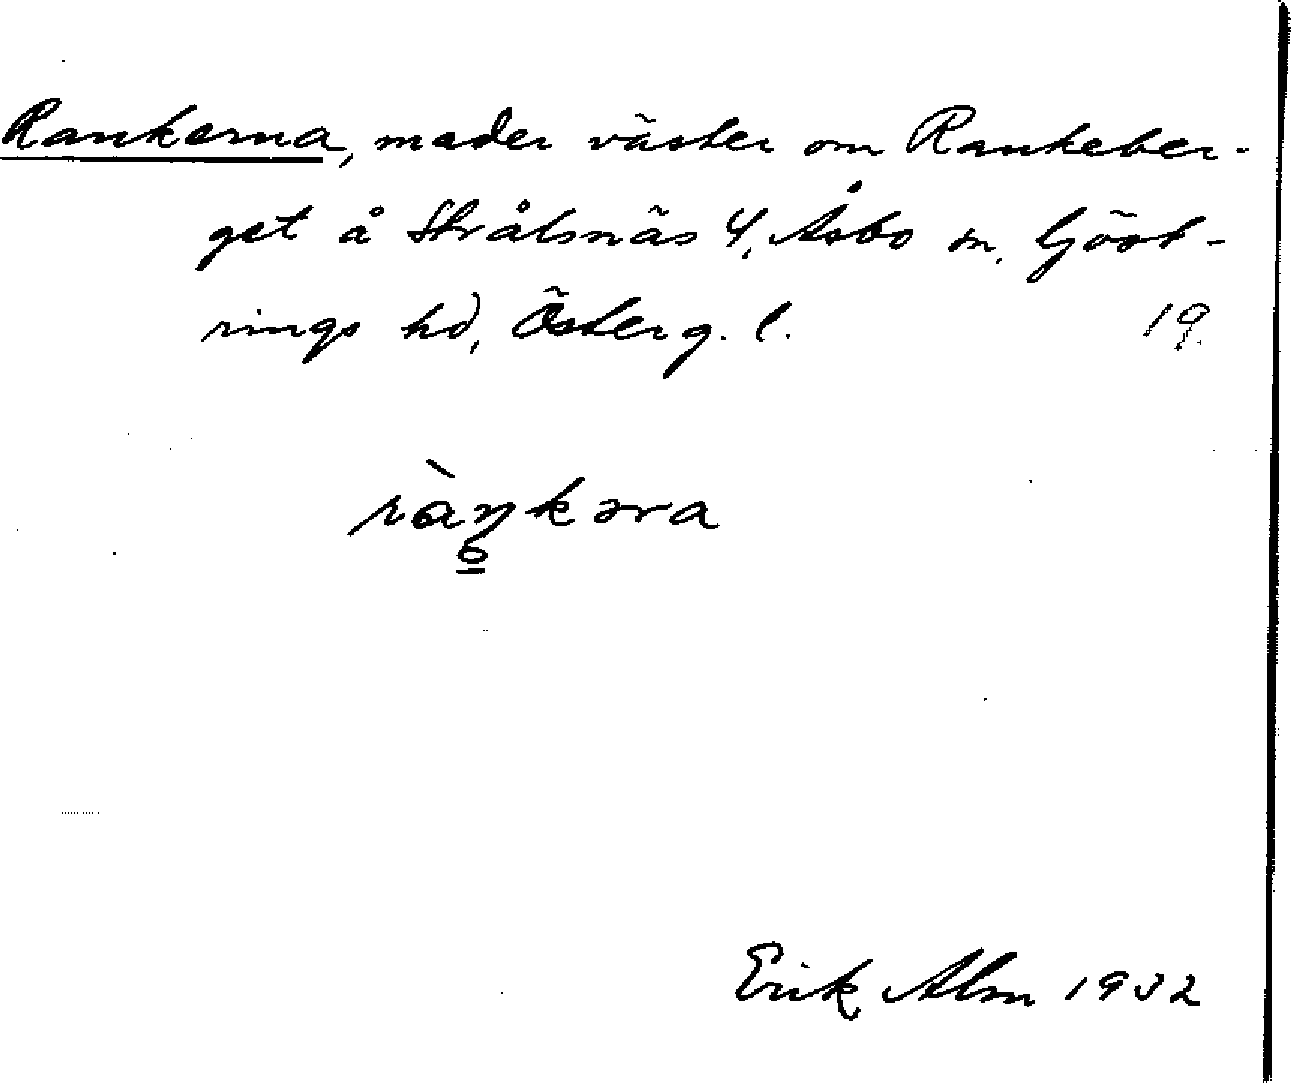 Rankerna, mader väster om Rankeber-
get å Strålsnäs 4, Åsbo sn, Göst-
rings hd, Österg. l. 19
ràŋkəra
Erik Alm 1932